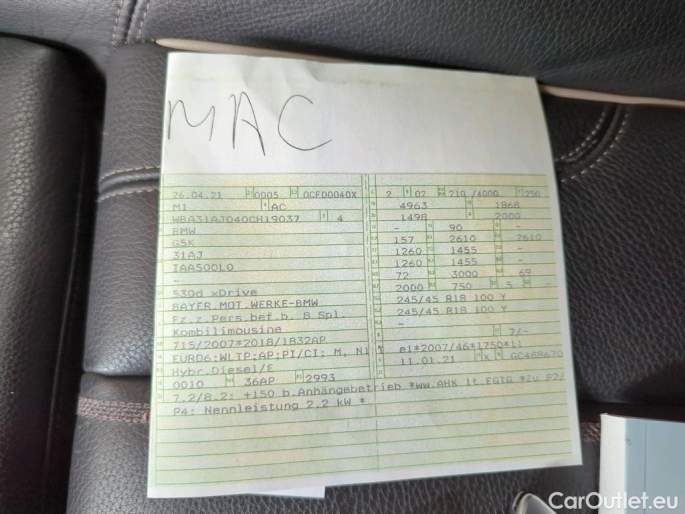 MAC
26.04.21 0005 0GFD0040X
M1 AC
WBA31AJ040CH19037 4
BMW
G5K
31AJ
IAA500L0
-
530d xDrive
BAYER.MOT.WERKE-BMW
Fz.z.Pers.bef.b. 8 Spl.
Kombilimousine
715/2007*2018/1832AP
EURO6;WLTP;AP;PI/CI; M, N1
Hybr.Diesel/E
0010 36AP 2993
2 02 210 /4000 250
4963 1868
1498 2000
- 90 -
157 2610 2610
1260 1455 -
1260 1455 -
72 3000 69
2000 750 5 -
245/45 R18 100 Y
245/45 R18 100 Y
-
- 7/-
e1*2007/46*1750*11
11.01.21 K GC488670
7.2/8.2: +150 b.Anhängebetrieb *ww.AHK lt.EGTG *Zu P2/
P4: Nennleistung 2.2 kW *
CarOutlet.eu